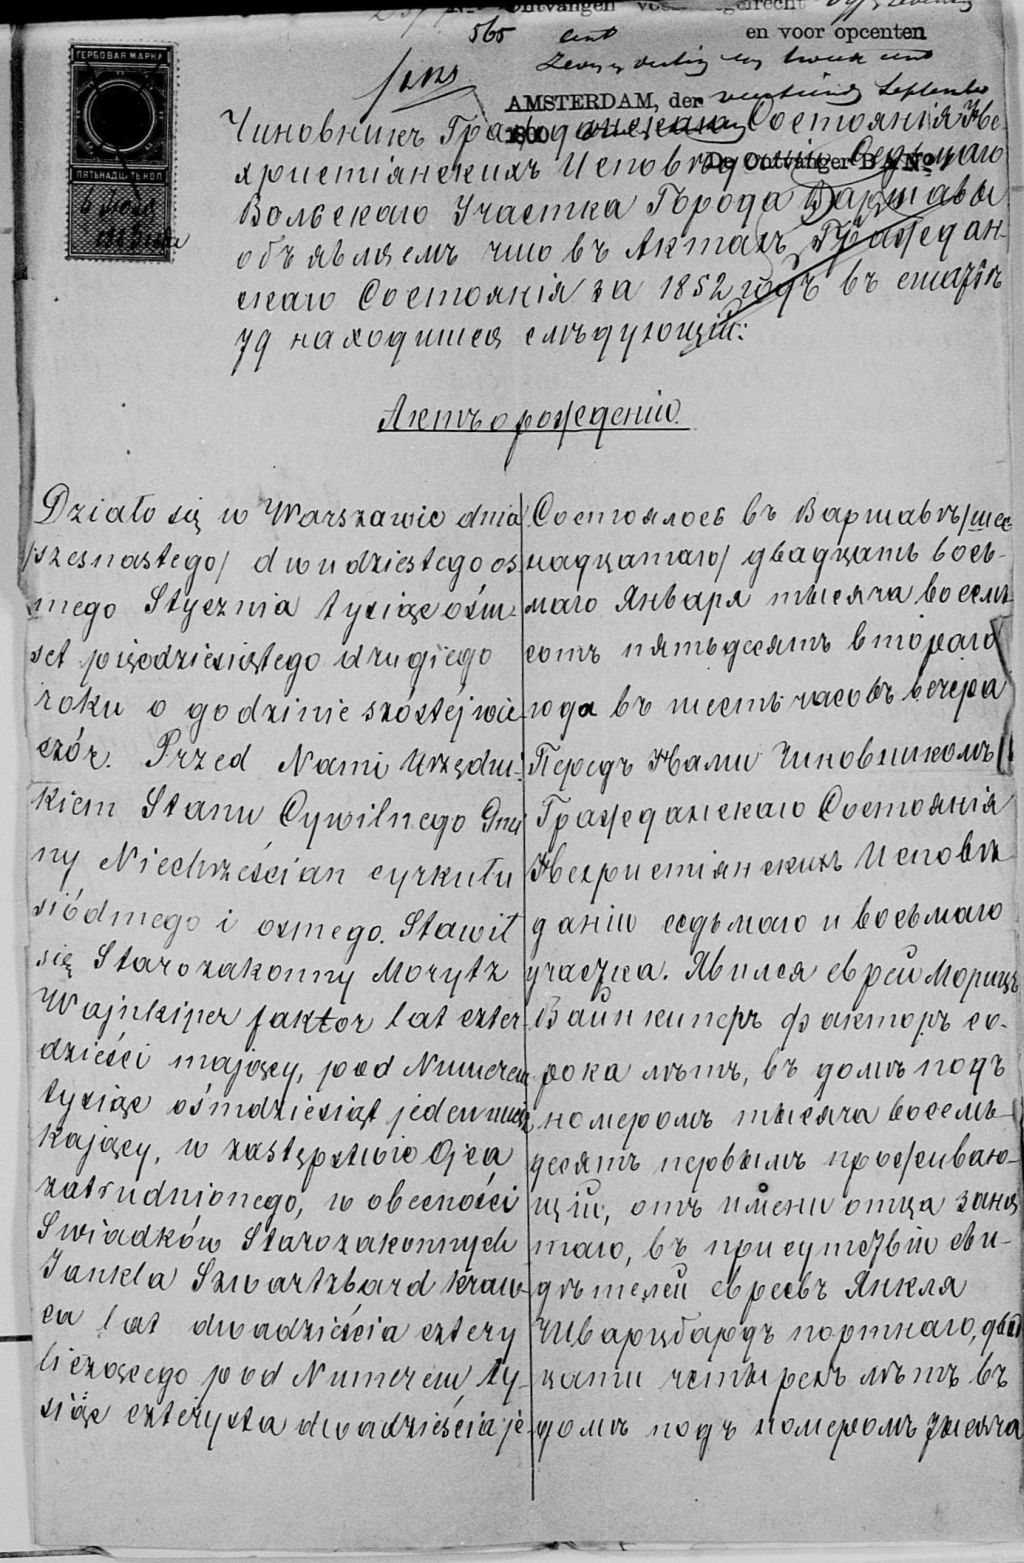 ontvangen
565 cent
en voor opcenten
ГЕРБОВАЯ МАРКА
ПЯТЬНАДЦАТЬ КОП
AMSTERDAM, den
De Ontvanger B A No
Чиновникъ Гражданскаго Состоянія Не-
христіанскихъ Исповѣданій Седьмаго
Вольскаго Участка Города Варшавы
объявляемъ что въ Актахъ Граждан-
скаго Состоянія за 1852 годъ въ статьѣ
79 находится слѣдующій:
Актъ о рожденіи.
Działo się w Warszawie dnia
/szesnastego/ dwudziestego os
mego Stycznia tysiąc ośm-
set pięcdziesiątego drugiego
roku o godzinie szóstéj wie-
czór. Przed Nami Urzędni-
kiem Stanu Cywilnego Gmi
ny Niechrześcian cyrkułu
siódmego i osmego. Stawił
się Starozakonny Morytz
Wajnkiper faktor lat czter-
dzieści mający, pod Numerem
tysiąc ośmdziesiąt jeden miesz
kający, w zastępstwie Ojca
zatrudnionego, w obecności
Swiadków Starozakonnych
Jankla Szwartzbard kraw-
ca lat dwadzieścia cztery
liczącego pod Numerem ty-
siąc czterysta dwadzieścia je-
Состоялось въ Варшавѣ /шес
надцатаго/ двадцать вось-
маго Января тысяча восемь
сотъ пятьдесятъ втораго
года въ шесть часовъ вечера
Передъ Нами Чиновникомъ
Гражданскаго Состоянія
Нехристіанскихъ Исповѣ
даній седьмаго и восьмаго
участка. Явился еврей Морицъ
Вайнкиперъ факторъ со-
рока лѣтъ, въ домѣ подъ
номеромъ тысяча восемь-
десятъ первымъ проживаю-
щій, отъ имени отца заня
таго, въ присутствіи сви-
дѣтелей евреевъ Янкля
Шварцбардъ портнаго, двад
цати четырехъ лѣтъ въ
домѣ подъ номеромъ тысяча